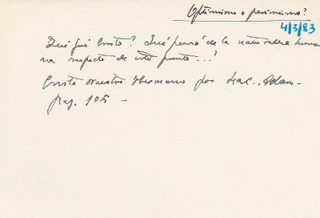 Optimismo o pesimismo?
4/3/83
Qué fué Cristo? Qué pensó de la naturaleza humana
na respecto de este punto...?
Cristo nuestro Hermano por Karl. Adam -
pag. 105 -